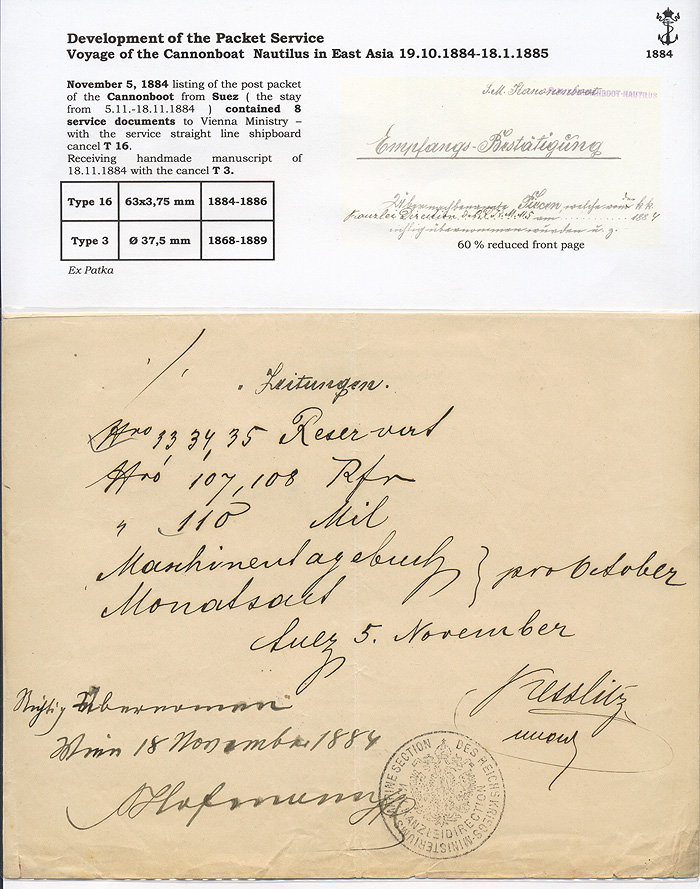 Development of the Packet Service
Voyage of the Cannonboat Nautilus in East Asia 19.10.1884-18.1.1885
1884
November 5, 1884 listing of the post packet
of the Cannonboot from Suez ( the stay
from 5.11.-18.11.1884 ) contained 8
service documents to Vienna Ministry –
with the service straight line shipboard
cancel T 16.
Receiving handmade manuscript of
18.11.1884 with the cancel T 3.
Type 16 63x3,75 mm 1884-1886
Type 3 Ø 37,5 mm 1868-1889
Ex Patka
S.M. Kanonenboot
Empfangs-Bestätigung
welche vom k.k.
Kanzlei Direction am 1884
richtig übernommen wurden u. z.
60 % reduced front page
Leitungen.
Nro 33, 34, 35 Reservat
Nro 107, 108 Rfr
" 110 Mil
Maschinentagebuch
Monatsact
pro October
Suez 5. November
Kesslitz
Richtig übernomen
Wien 18 November 1884
Hofmann
MARINESECTION DES REICHSKRIEGS-MINISTERIUMS
KANZLEIDIRECTION